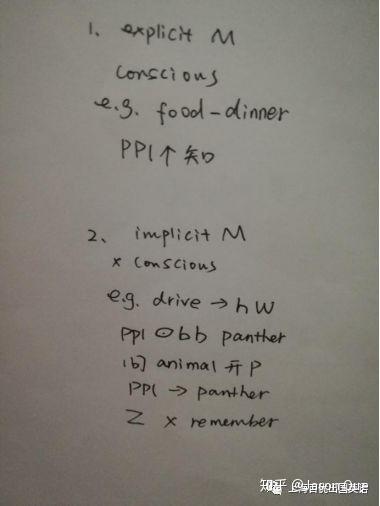 1、 explicit M
conscious
e.g. food-dinner
PPl↑ 知
2、 implicit M
× conscious
e.g. drive → hW
ppl ⊙bb panther
问 animal 开P
PPl → panther
Z × remember
知乎 @Jason Que
上海百优出国英语